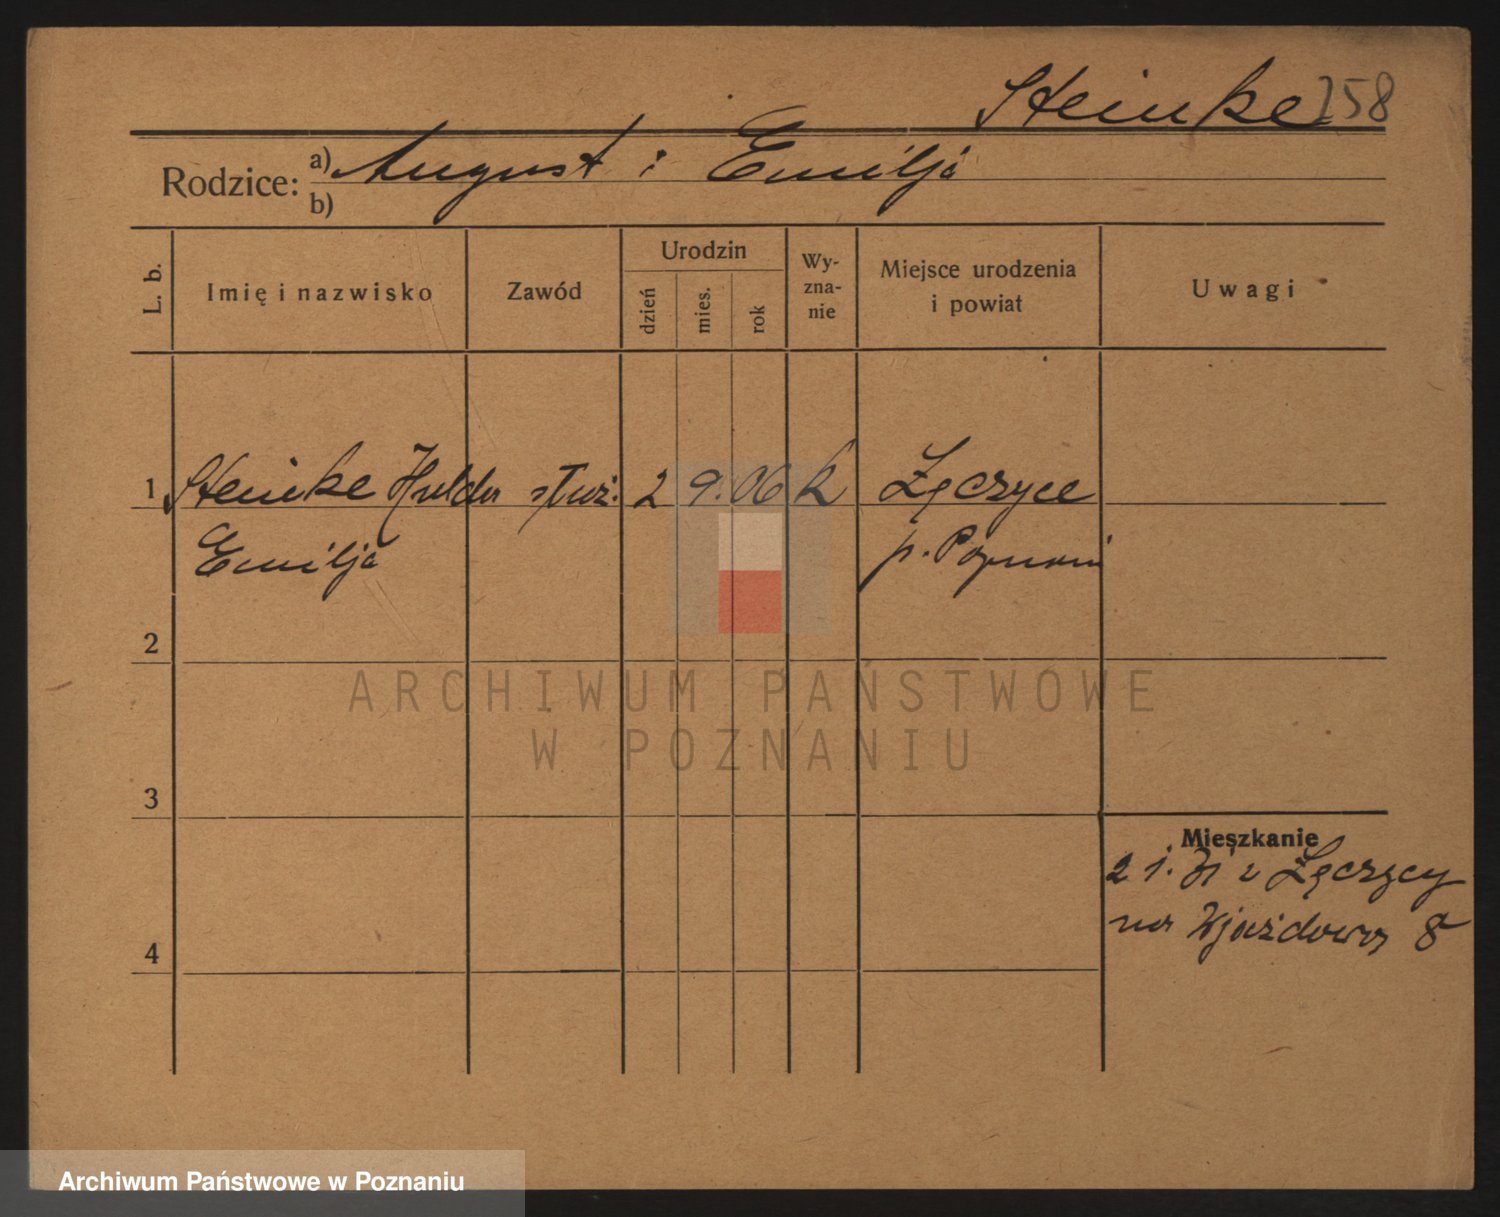 Steinke 258
Rodzice: a) August i Emilja
b)
L. b.
Imię i nazwisko
Zawód
Urodzin
dzień
mies.
rok
Wy-
zna-
nie
Miejsce urodzenia
i powiat
Uwagi
1 Steinke Hulda służ. 2 9. 06 k Łęczyce
Emilja p. Poznań
2
ARCHIWUM PAŃSTWOWE
W POZNANIU
3
Mieszkanie
2 1. 31 z Łęczycy
4 na Wjazdowa 8
Archiwum Państwowe w Poznaniu